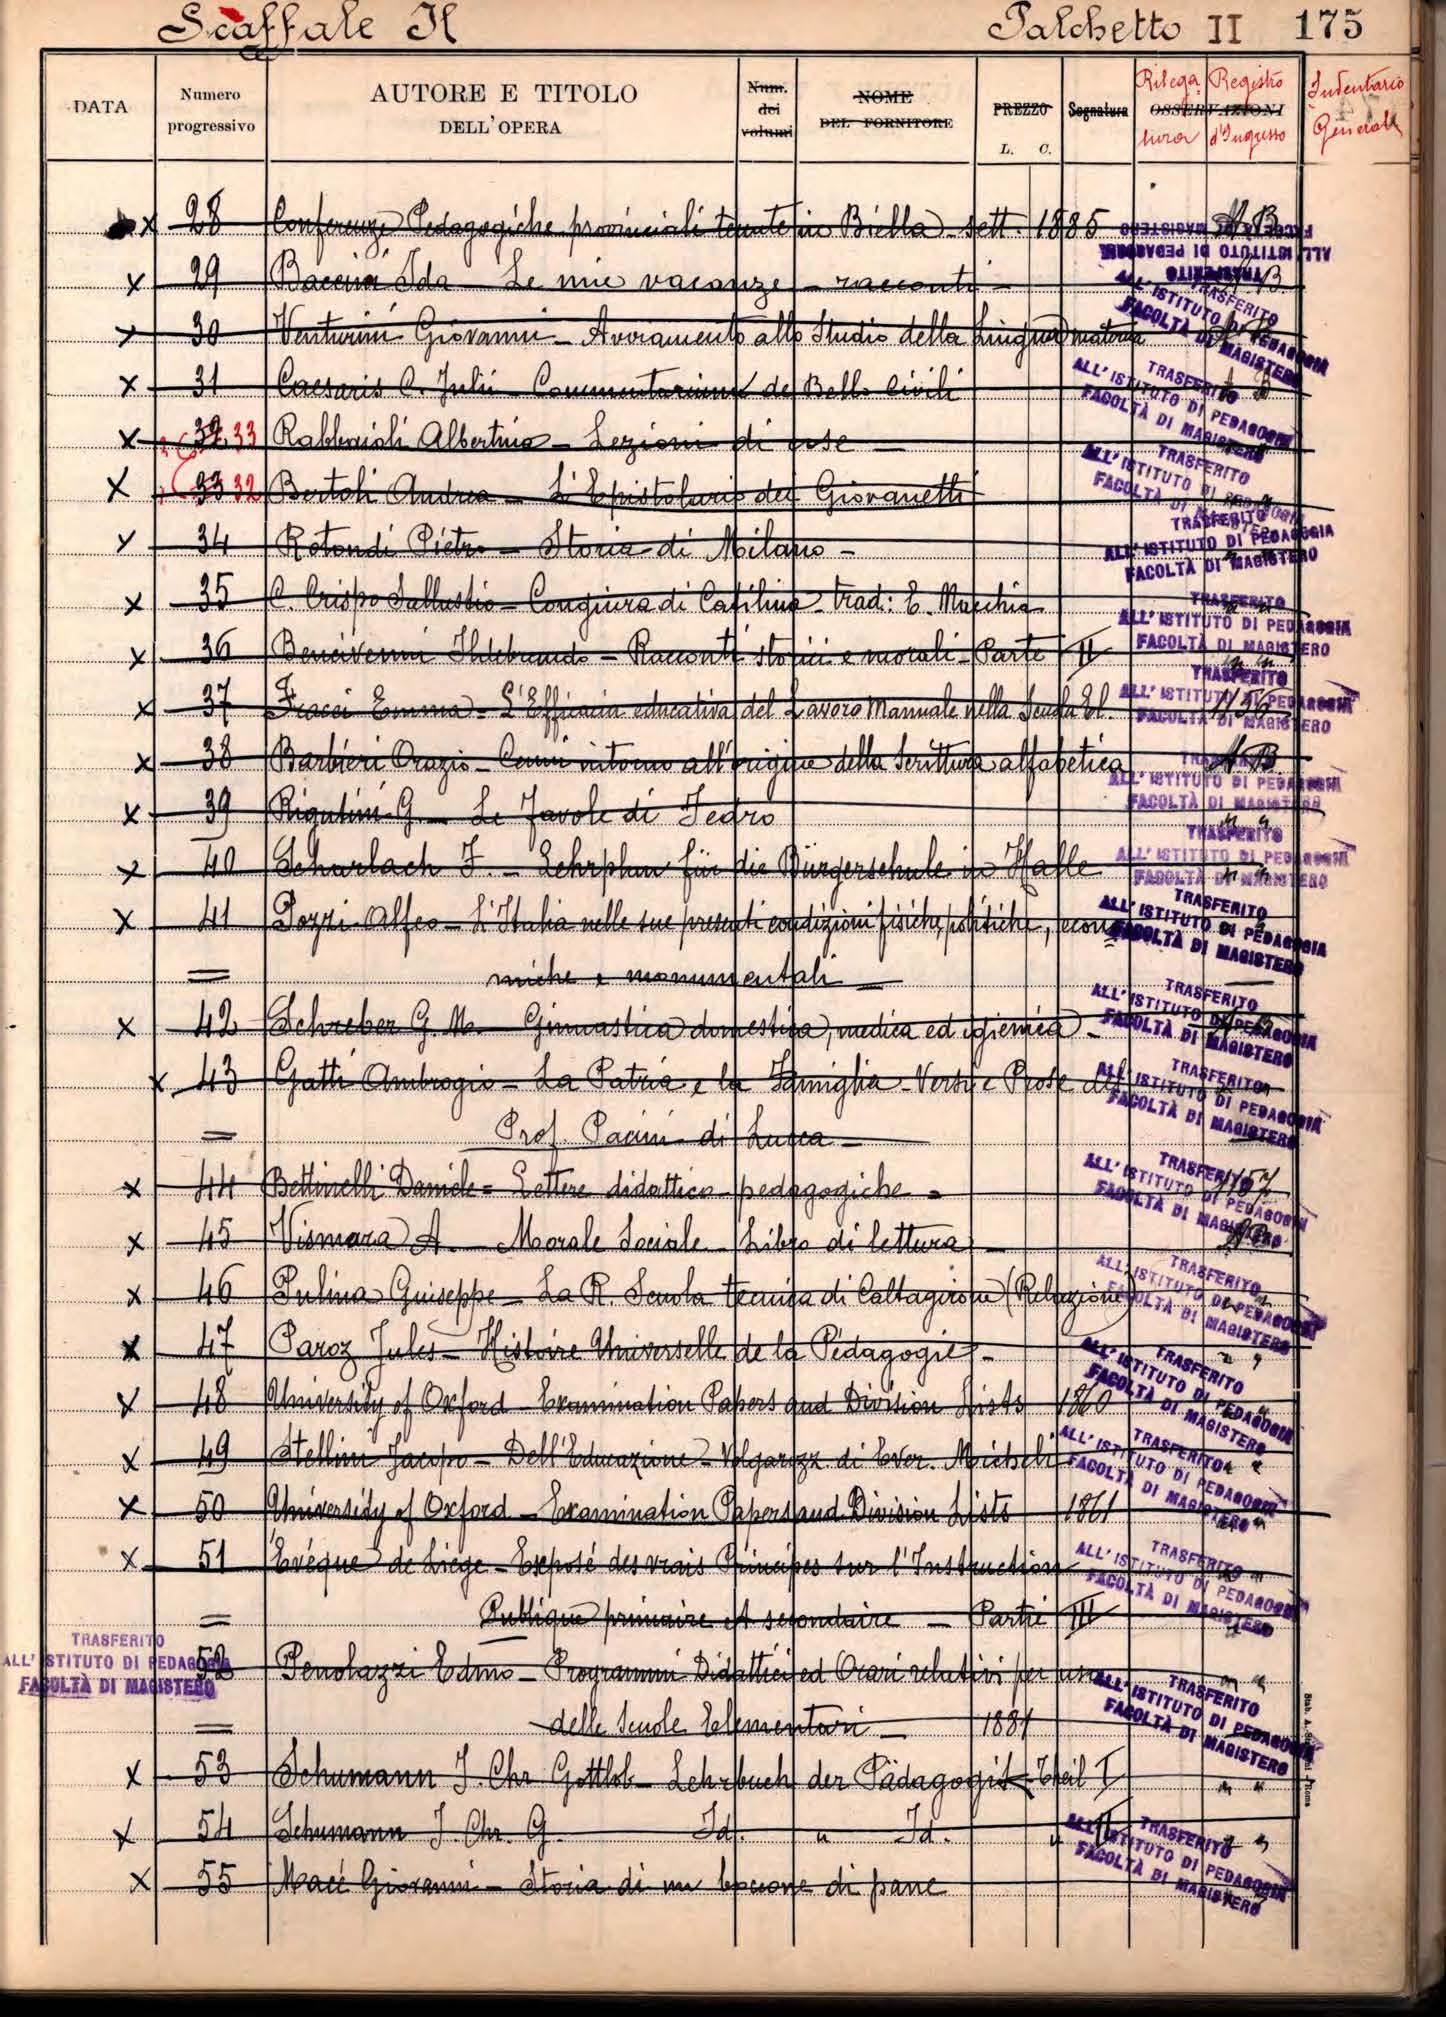 Scaffale II Palchetto II 175
DATA Numero progressivo AUTORE E TITOLO DELL'OPERA Num. dei volumi NOME DEL FORNITORE PREZZO L. C. Segnatura OSSERVAZIONI Rilegatura Registro d'Ingresso Inventario Generale
x 28 Conferenze Pedagogiche provinciali tenute in Biella - sett. 1885 A B
x 29 Baccini Ida - Le mie vacanze - racconti - B.
x 30 Venturini Giovanni - Avviamento allo Studio della Lingua materna
x 31 Caesaris C. Julii - Commentarium de Bello Civili
x 32 33 Rabbaioli Albertina - Lezioni di cose -
x 33 32 Bertoli Andrea - L'Epistolario dei Giovanetti
x 34 Rotondi Pietro - Storia di Milano -
x 35 C. Crispo Sallustio - Congiura di Catilina - trad: E. Macchia
x 36 Bencivenni Ildebrando - Racconti storici e morali - Parte II
x 37 Fracci Emma - L'Efficacia educativa del Lavoro Manuale nella Scuola El. 1156
x 38 Barbieri Orazio - Cenni intorno all'origine della Scrittura alfabetica A B
x 39 Rigutini G. - Le Favole di Fedro
x 40 Scharlach F. - Lehrplan für die Bürgerschule in Halle
x 41 Pozzi Alfeo - L'Italia nelle sue presenti condizioni fisiche, politiche, econo
= miche e monumentali -
x 42 Schreber G. M. - Ginnastica domestica, medica ed igienica -
x 43 Gatti Ambrogio - La Patria e la Famiglia - Versi e Prose del
= Prof. Pacini di Lucca -
x 44 Bettinelli Daniele = Lettere didattico-pedagogiche = 1157
x 45 Vismara A. - Morale Sociale - Libro di lettura -
x 46 Pulina Guiseppe - La R. Scuola tecnica di Caltagirone (Relazione)
x 47 Paroz Jules - Histoire Universelle de la Pédagogie -
x 48 University of Oxford - Examination Papers and Division Lists 1860
x 49 Stellini Jacopo - Dell'Educazione - Volgarizz. di Ever. Micheli
x 50 University of Oxford - Examination Papers and Division Lists 1861
x 51 Evêque de Liege - Exposé des vrais Principes sur l'Instruction
= Publique primaire et secondaire - Partie III
52 Penolazzi Edmo - Programmi Didattici ed Orari relativi per uso
= delle Scuole Elementari - 1881
x 53 Schumann J. Chr. Gottlob - Lehrbuch der Pädagogik - Theil I
x 54 Schumann J. Chr. G. Id. " Id. " II
x 55 Macé Giovanni - Storia di un boccone di pane
TRASFERITO
ALL'ISTITUTO DI PEDAGOGIA
FACOLTÀ DI MAGISTERO